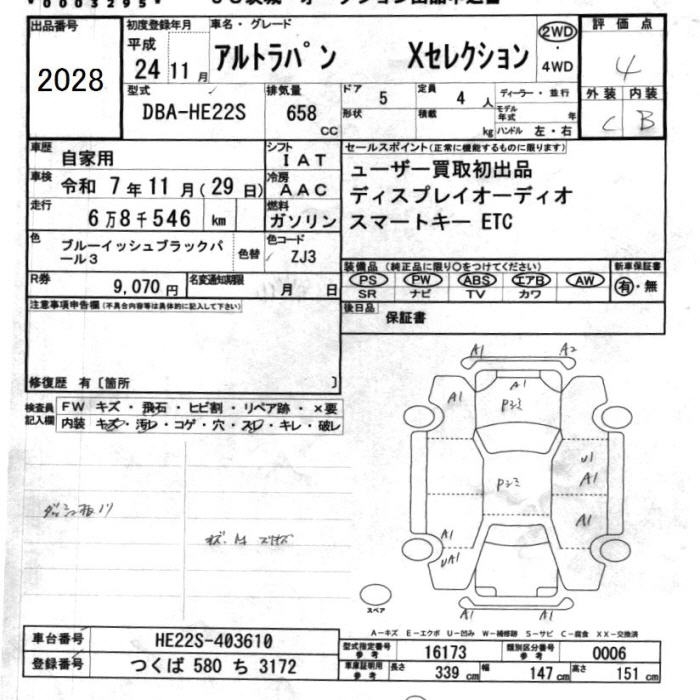 00003295
出品番号
2028
初度登録年月
平成
24 11月
車名・グレード
アルトラパン Xセレクション
2WD
・
4WD
評価点
4
外装 内装
C B
型式
DBA-HE22S
排気量
658 CC
ドア 5
定員 4 人
ディーラー・並行
形状
積載 kg
モデル年式 年
ハンドル 左・右
車歴
自家用
シフト
IAT
セールスポイント(正常に機能するものに限ります)
ユーザー買取初出品
ディスプレイオーディオ
スマートキー ETC
車検
令和 7年11月(29日)
冷房
AAC
走行
6万8千546 km
燃料
ガソリン
色
ブルーイッシュブラックパール3
色替
色コード
ZJ3
R券
9,070円
名変通知期限
月 日
装備品(純正品に限り○をつけてください)
PS PW ABS エアB AW
SR ナビ TV カワ
新車保証書
有・無
後日品
保証書
注意事項申告欄(不具合内容等は具体的に記入して下さい)
修復歴 有〔箇所 〕
検査員記入欄
FW キズ・飛石・ヒビ割・リペア跡・×要
内装 キズ・汚レ・コゲ・穴・スレ・キレ・破レ
A1 A2
A1 A1
Pシミ
U1
A1
Pシミ
A1
A1
UA1
A1 A1
スペア
A-キズ E-エクボ U-凹み W-補修跡 S-サビ C-腐食 XX-交換済
車台番号
HE22S-403610
登録番号
つくば 580 ち 3172
型式指定番号 参考
16173
類別区分番号 参考
0006
車庫証明用 参考
長さ 339 cm
幅 147 cm
高さ 151 cm